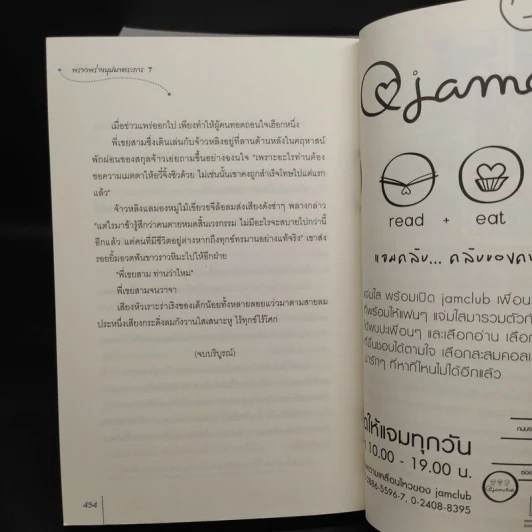 พราวพร่างบุปผาตระการ 7
เมื่อข่าวแพร่ออกไป เพียงทำให้ผู้คนทอดถอนใจเฮือกหนึ่ง
พี่เขยสามซึ่งเดินเล่นกับจ้าวหลิงอยู่ที่ลานด้านหลังในคฤหาสน์
พักผ่อนของสกุลจ้าวเอ่ยถามขึ้นอย่างฉงนใจ "เพราะอะไรท่านต้อง
ขอความเมตตาให้อวี้จิ้งซิวด้วย ไม่เช่นนั้นเขาคงถูกสำเร็จโทษไปแต่แรก
แล้ว"
จ้าวหลิงแลมองหมู่ไม้เขียวขจีล้อลมส่งเสียงดังซ่าๆ พลางกล่าว
"แต่ไรมาข้ารู้สึกว่าคนตายหมดสิ้นเวรกรรม ไม่มีอะไรจะสบายไปกว่านี้
อีกแล้ว แต่คนที่มีชีวิตอยู่ต่างหากถึงทุกข์ทรมานอย่างแท้จริง" เขาส่ง
รอยยิ้มอวดฟันขาวราวหิมะไปให้อีกฝ่าย
"พี่เขยสาม ท่านว่าไหม"
พี่เขยสามจนวาจา
เสียงหัวเราะร่าเริงของเด็กน้อยทั้งหลายลอยแว่วมาตามสายลม
ประหนึ่งเสียงกระดิ่งลมกังวานใสเสนาะหู ไร้ทุกข์ไร้โศก
(จบบริบูรณ์)
454
jamc
read + eat
แจมคลับ... คลับของค
แจ่มใส พร้อมเปิด jamclub เพื่อน
ที่พร้อมให้แฟนๆ แจ่มใสมารวมตัวกั
ได้พบปะเพื่อนๆ และเลือกอ่าน เลือก
ที่ชื่นชอบได้ตามใจ เลือกสะสมคอลเ
น่ารักๆ ที่หาที่ไหนไม่ได้อีกแล้ว
ให้แจมทุกวัน
10.00 - 19.00 น.
ความเคลื่อนไหวของ jamclub
-2886-5596-7, 0-2408-8395
jamclub